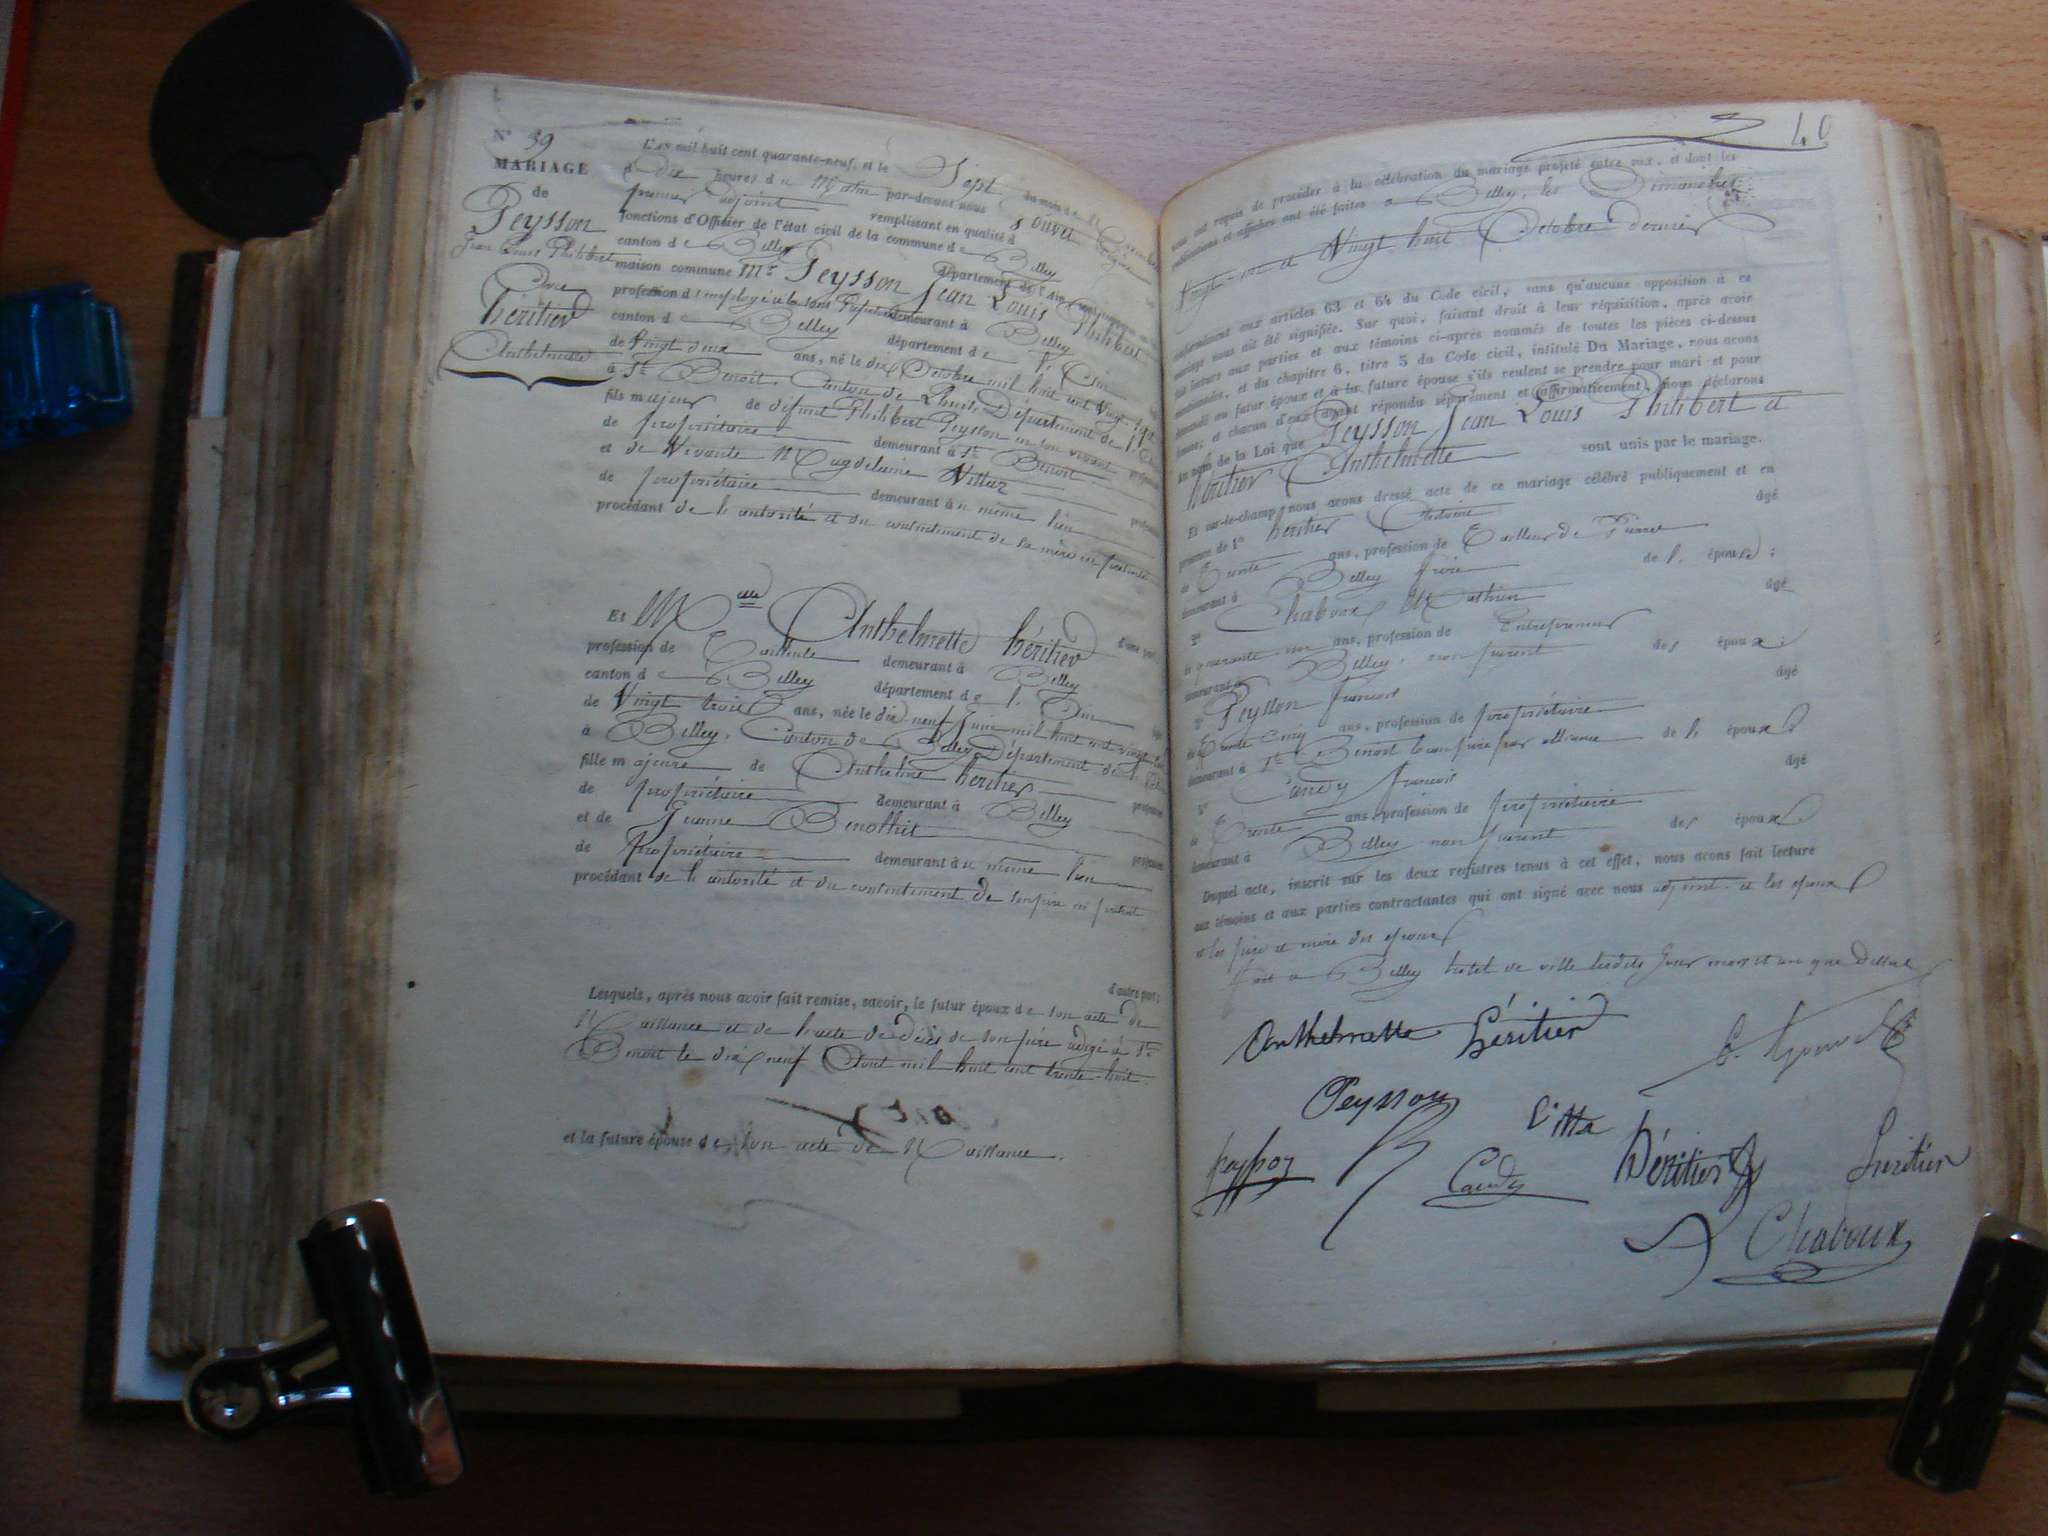 N° 39
MARIAGE
de
Peysson
Jean Louis Philibert
Avec
héritier
Anthelmette
L'AN mil huit cent quarante-neuf, et le Sept du mois de
à Dix heures du Matin par-devant nous
premier adjoint remplissant en qualité d
fonctions d'Officier de l'état civil de la commune de Belley
canton de Belley département de l'Ain
maison commune Mr Peysson Jean Louis Philibert
profession d'employé demeurant à Belley
canton de Belley département de l'Ain
de Vingt deux ans, né le dix Octobre mil huit cent Vingt sept
à St Benoit, Canton de Lhuis, Département de l'Ain
fils majeur de défunt Philibert Peysson en son vivant
de propriétaire demeurant à St Benoit
et de Vivante Magdeleine Vittaz
de propriétaire demeurant au même lieu
procédant de l'autorité et du consentement de sa mère ici présente
d'une part;
Et Melle Anthelmette héritier
profession de demeurant à Belley
canton de Belley département de l'Ain
de Vingt trois ans, née le dix neuf Juin mil huit cent vingt
à Belley, Canton de Belley Département de l'Ain
fille majeure de Anthelme héritier
de propriétaire demeurant à Belley
et de Jeanne
de propriétaire demeurant au même lieu
procédant de l'autorité et du consentement de son père ici présent
d'autre part;
Lesquels, après nous avoir fait remise, savoir, le futur époux de son acte de
Naissance et de l'acte de décès de son père rédigé à St
Benoit le dix neuf Aout mil huit cent trente-huit.
et la future épouse de son acte de Naissance.
40
nous ont requis de procéder à la célébration du mariage projeté entre eux, et dont les
publications et affiches ont été faites a Belley, les Dimanches
Vingt-un et Vingt huit Octobre dernier
conformément aux articles 63 et 64 du Code civil, sans qu'aucune opposition à ce
mariage nous ait été signifiée. Sur quoi, faisant droit à leur réquisition, après avoir
fait lecture aux parties et aux témoins ci-après nommés de toutes les pièces ci-dessus
mentionnées, et du chapitre 6, titre 5 du Code civil, intitulé Du Mariage, nous avons
demandé au futur époux et à la future épouse s'ils veulent se prendre pour mari et pour
femme; et chacun d'eux ayant répondu séparément et affirmativement, nous déclarons
au nom de la Loi que Peysson Jean Louis Philibert et
héritier Anthelmette sont unis par le mariage.
Et sur-le-champ nous avons dressé acte de ce mariage célébré publiquement et en
présence de 1° héritier Antoine âgé
de Trente ans, profession de Tailleur de Pierre
demeurant à Belley frère de l'épouse;
2° Chaboux Mathieu âgé
de quarante-un ans, profession de Entrepreneur
demeurant à Belley, non parent des époux;
3° Peysson francois âgé
de Trente Cinq ans, profession de propriétaire
demeurant à St Benoit beau frère par alliance de l'époux
4° Candy francois âgé
de Trente ans, profession de propriétaire
demeurant à Belley non parent des époux
Duquel acte, inscrit sur les deux registres tenus à cet effet, nous avons fait lecture
aux témoins et aux parties contractantes qui ont signé avec nous adjoint et les époux
et les père et mère des époux
fait a Belley hotel de ville lesdits Jour mois et an que Dessus
Anthelmette héritier
Peysson
Vitta
Candy
Héritier
héritier
Chaboux